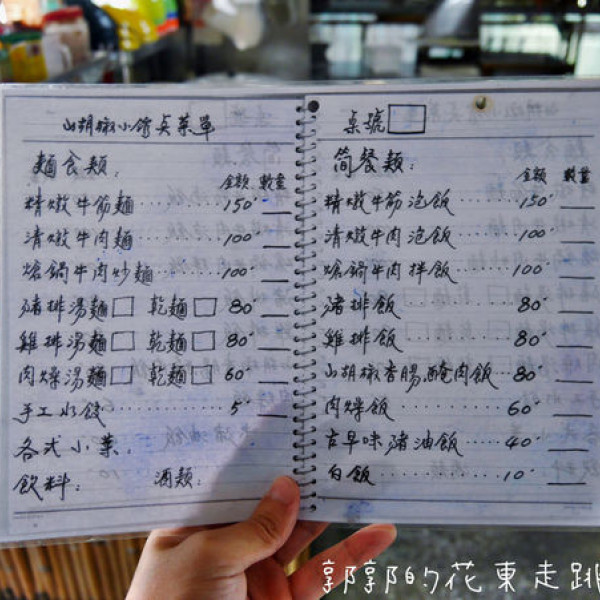 山胡椒小館点菜單
麵食類：
金額 數量
精燉牛筋麵 150
清燉牛肉麵 100
熗鍋牛肉炒麵 100
豬排湯麵□ 乾麵□ 80
雞排湯麵□ 乾麵□ 80
肉燥湯麵□ 乾麵□ 60
手工水餃 5
各式小菜：
飲料： 酒類：
桌號□
简餐類：
金額 數量
精燉牛筋泡飯 150
清燉牛肉泡飯 100
熗鍋牛肉拌飯 100
豬排飯 80
雞排飯 80
山胡椒香腸,醃肉飯 80
肉燥飯 60
古早味豬油飯 40
白飯 10
郭郭的花東走跳